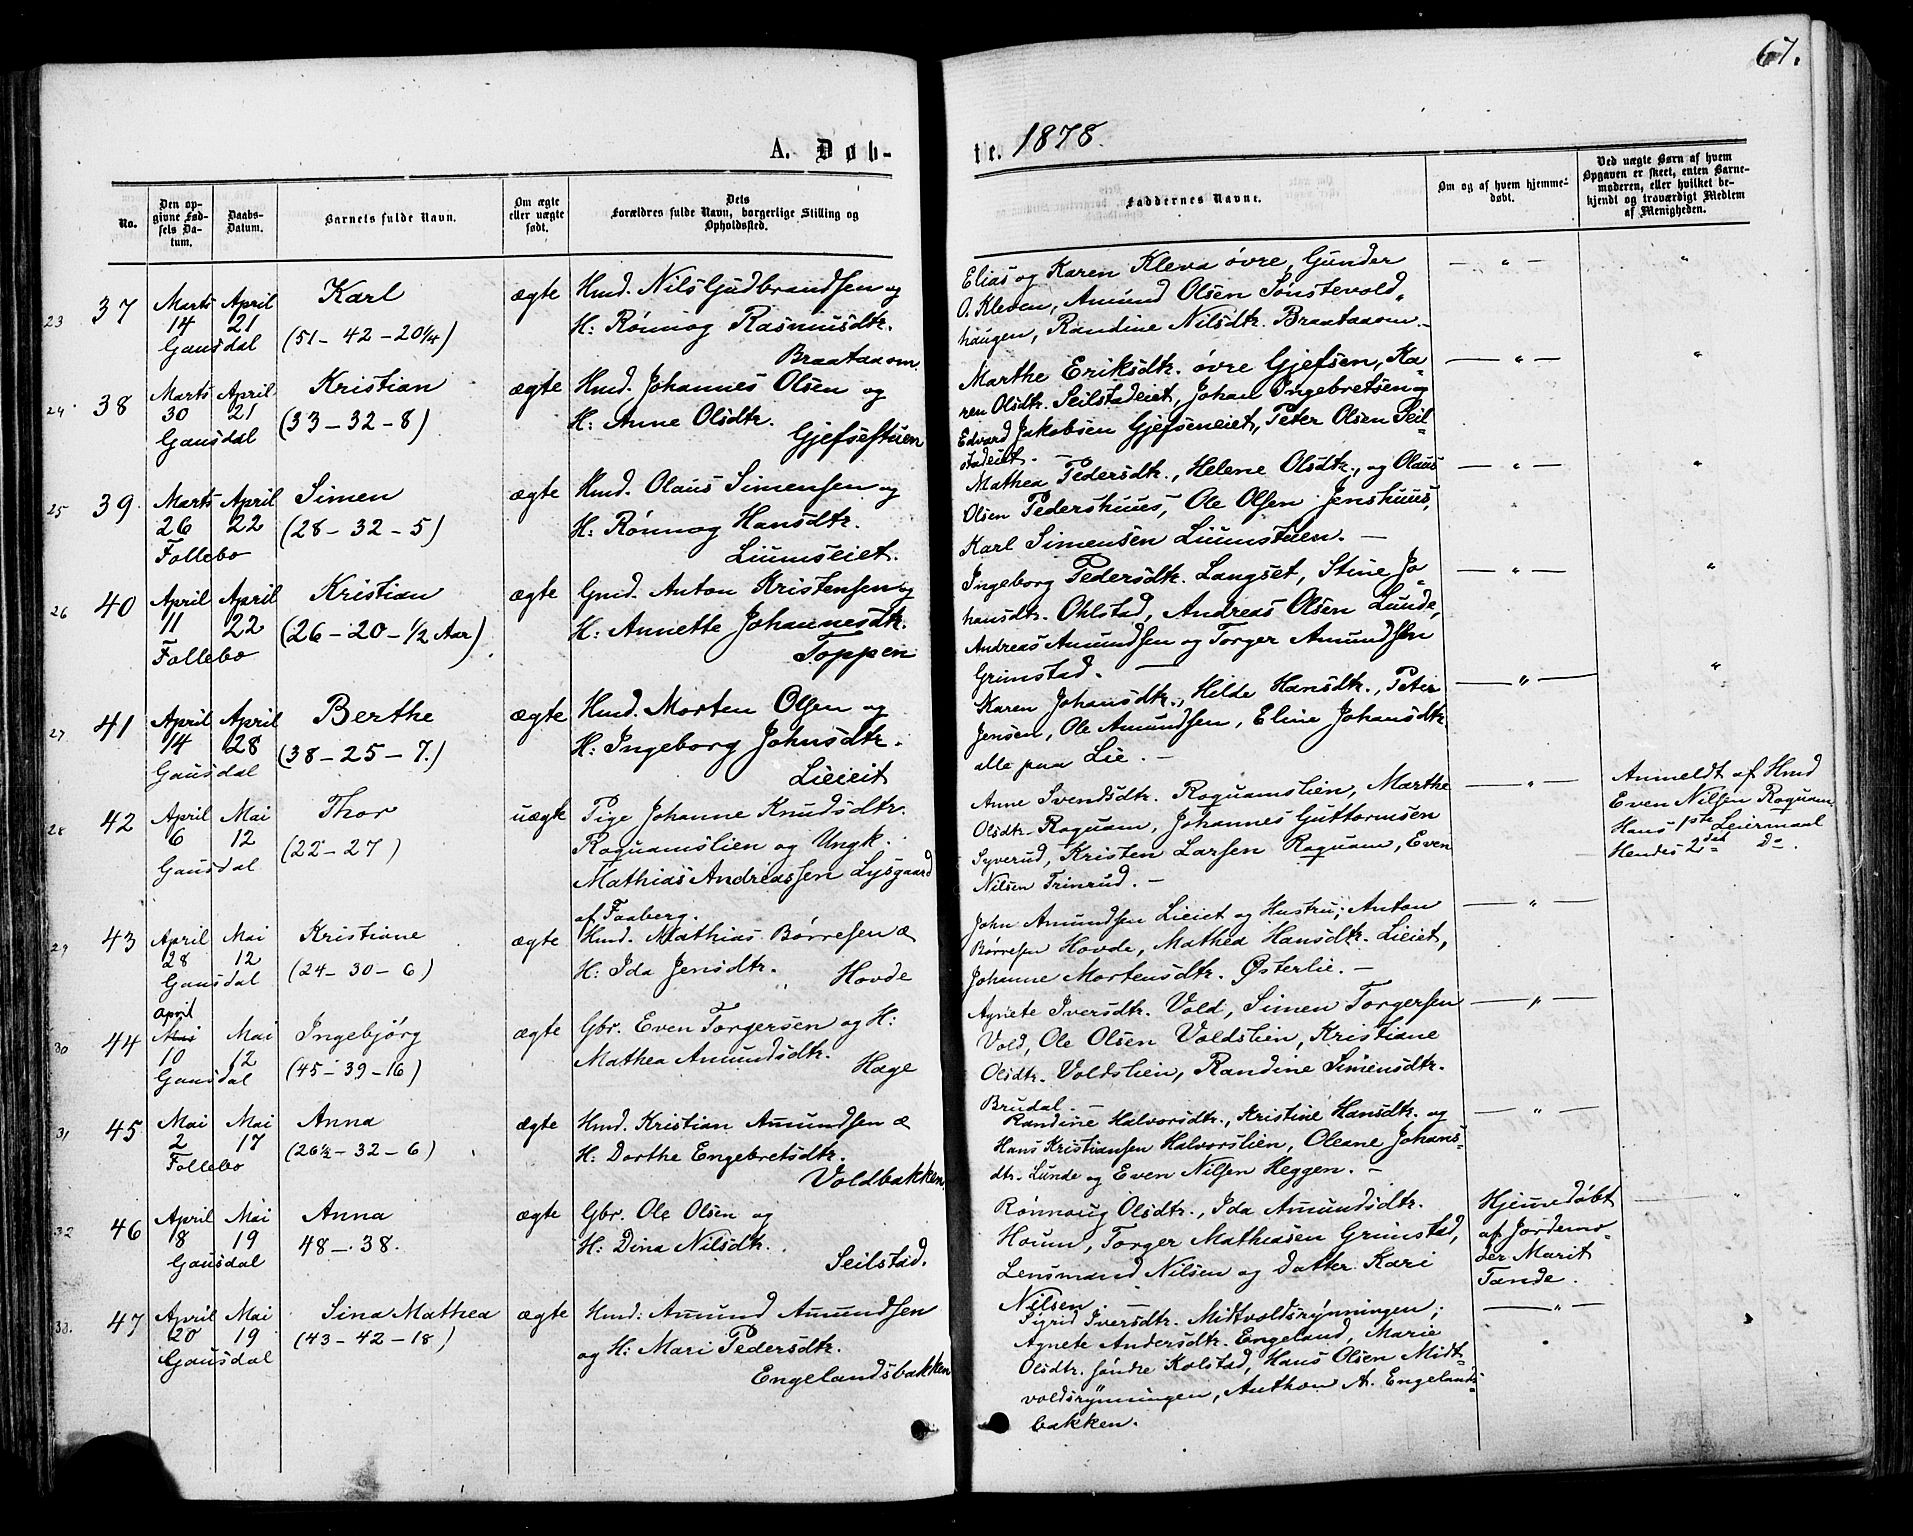 67.
A. Døb-
te. 1878.
No.
Den op-
givne Fød-
sels Da-
tum.
Daabs-
Datum.
Barnets fulde Navn.
Om ægte
eller uægte
født.
Dets
Forældres fulde Navn, borgerlige Stilling og
Opholdssted.
Faddernes Navne.
Om og af hvem hjemme-
døbt.
Ved uægte Børn af hvem
Opgaven er skeet, enten Barne-
moderen, eller hvilket be-
kjendt og troværdigt Medlem
af Menigheden.
23 37 Marts 14 Gausdal April 21
Karl
(51 - 42 - 20 1/4)
ægte
Hmd. Nils Gudbrandsen og
H: Rönnog Rasmusdtr.
Braataaom
Elias og Karen Kleva övre, Gunder
O. Kleven, Amund Olsen Sönstevold-
haugen, Randine Nilsdtr. Braataaom. -
— " —
"
24 38 Marts 30 Gausdal April 21
Kristian
(33 - 32 - 8)
ægte
Hmd. Johannes Olsen og
H: Anne Olsdtr.
Gjefsestuen
Marthe Eriksdtr. övre Gjefsen, Ka-
ren Olsdtr. Seilstadeiet, Johan Ingebretsen og
Edvard Jakobsen Gjefseneiet, Peter Olsen Seil-
stadeiet. -
— " —
"
25 39 Marts 26 Follebo April 22
Simen
(28 - 32 - 5)
ægte
Hmd. Olaus Simensen og
H: Rönnog Hansdtr.
Liumseiet.
Mathea Pedersdtr., Helene Olsdtr., og Olaus
Olsen Pedershuus, Ole Olsen Jenshuus,
Karl Simensen Liumstuen. -
— " —
"
26 40 April 11 Follebo April 22
Kristian
(26 - 20 - 1/2 Aar)
ægte
Gmd. Anton Kristensen og
H: Annette Johannesdtr.
Toppen
Ingeborg Pedersdtr. Langset, Stine Jo-
hansdtr. Ohlstad, Andreas Olsen Lunde,
Andreas Amundsen og Torger Amundsen
Grimstad. —
— " —
"
27 41 April 14 Gausdal April 28
Berthe
(38 - 25 - 7.)
ægte
Hmd. Morten Olsen og
H: Ingeborg Johnsdtr.
Lieieit
Karen Johansdtr., Hilde Hansdtr., Peter
Jensen, Ole Amundsen, Eline Johansdtr.
alle paa Lie. -
— " —
"
28 42 April 6 Gausdal Mai 12
Thor
(22 - 27)
uægte
Pige Johanne Knudsdtr.
Roquamslien og Ungk.
Mathias Andreassen Lysgaard
af Faaberg.
Anne Svendsdtr. Roquamslien, Marthe
Olsdtr. Roquam, Johannes Guttormsen
Syverud, Kristen Larsen Roquam, Even
Nilsen Trinrud. -
— " —
Anmeldt af Hmd
Even Nilsen Roquam
Hans 1ste Leiermaal
Hendes 2det Do.
29 43 April 28 Gausdal Mai 12
Kristiane
(24 - 30 - 6)
ægte
Hmd. Mathias Börresen &
H: Ida Jensdtr. Hovde
John Amundsen Lieiet og Hustru; Anton
Börresen Hovde, Mathea Hansdtr. Lieiet,
Johanne Mortensdtr. Østerlie. -
— " —
30 44 April Mai 10 Gausdal Mai 12
Ingebjörg
(45 - 39 - 16)
ægte
Gbr. Even Torgersen og H:
Mathea Amundsdtr.
Hage
Agnete Iversdtr. Vold, Simen Torgersen
Vold, Ole Olsen Voldslien, Kristiane
Olsdtr. Voldslien, Randine Simensdtr.
Brudal. -
— " —
31 45 Mai 2 Follebo Mai 17
Anna
(26 1/2 - 32 - 6)
ægte
Hmd. Kristian Amundsen &
H: Dorthe Engebretsdtr.
Voldbakken
Randine Halvorsdtr., Kristine Hansdtr. og
Hans Kristiansen Halvorslien, Oleane Johans-
dtr. Lunde og Even Nilsen Heggen. -
— " —
32 46 April 18 Gausdal Mai 19
Anna
48 - 38.
ægte
Gbr. Ole Olsen og
H: Dina Nilsdtr.
Seilstad.
Rönnoug Olsdtr., Ida Amundsdtr.
Houm, Torger Mathiasen Grimstad,
Lensmand Nilsen og Datter Kari
Nilsen. -
Hjemmedöbt
af Jordemo-
der Marit
Tande.
"
33. 47 April 20 Gausdal Mai 19
Sina Mathea
(43 - 42 - 18)
ægte
Hmd: Amund Amundsen
og H: Mari Pedersdtr.
Engelandsbakken
Sigrid Iversdtr. Midtvoldsrynningen;
Agnete Andersdtr. Engeland, Marie
Olsdtr. söndre Kolstad, Hans Olsen Midt-
voldsrynningen, Anthon A. Engelands-
bakken.
— " —